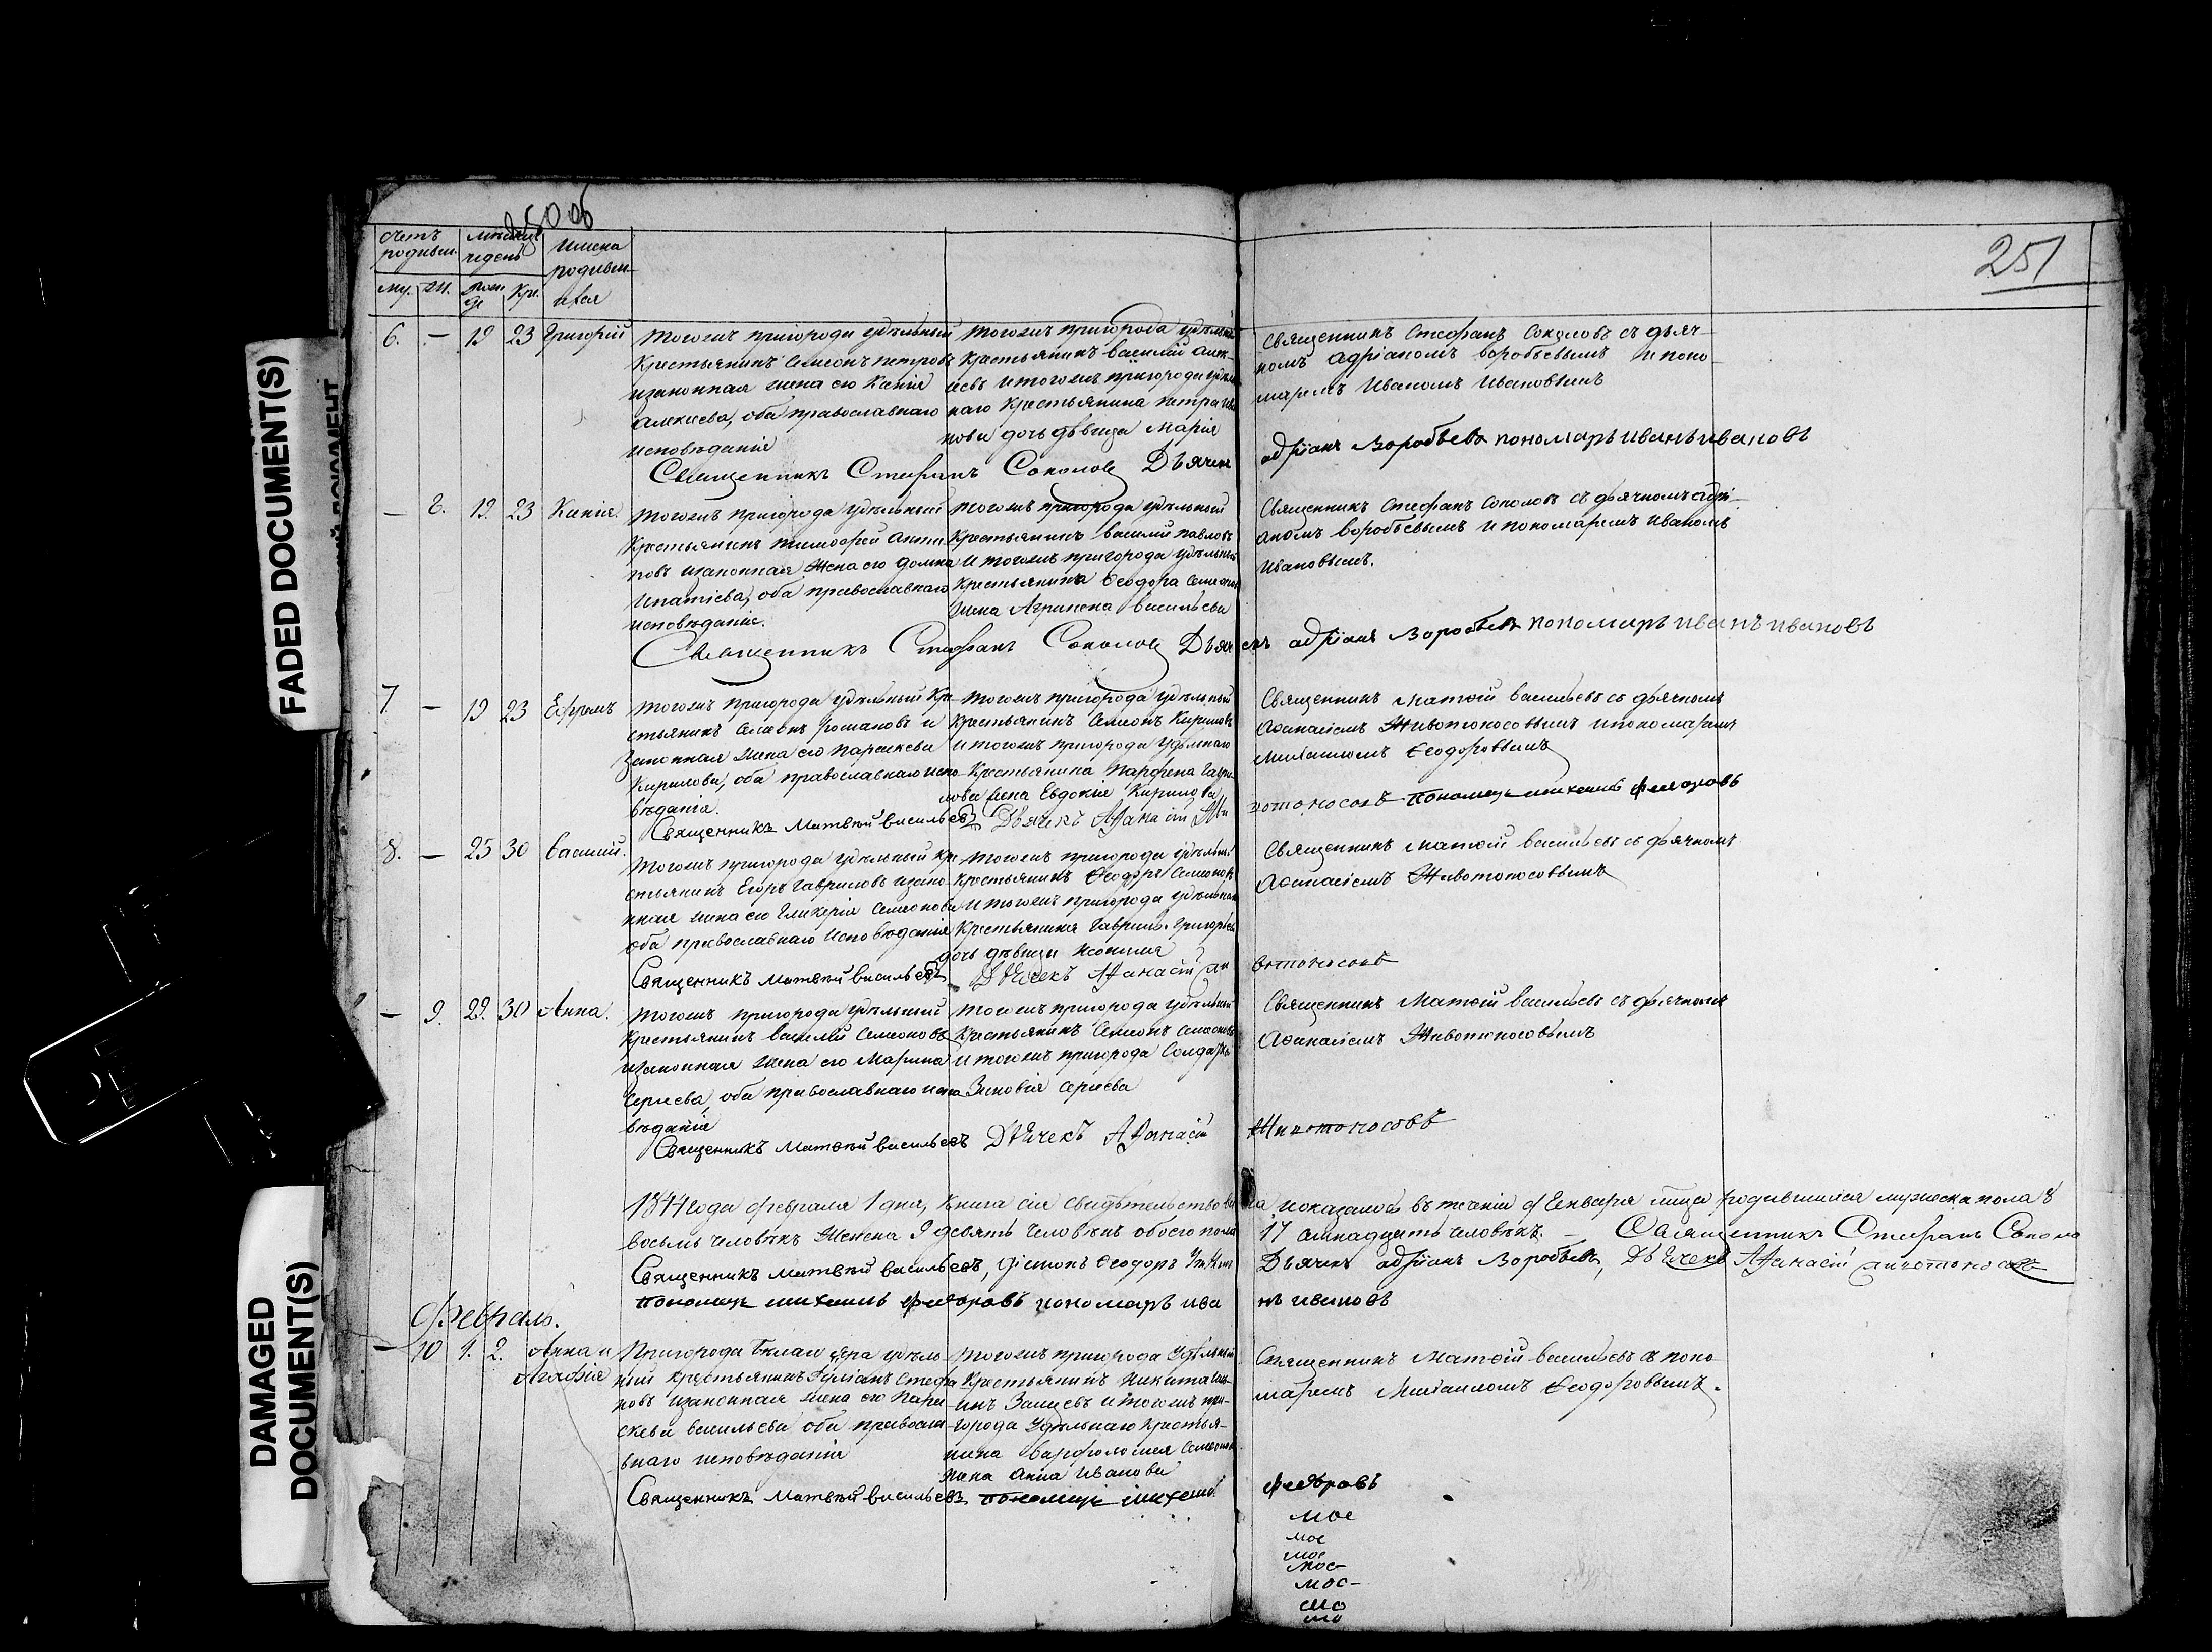 250 об
251
счетъ родивш.
мѣсяцъ и день
имена родившихся
му. ж. рож де Кре.
6. — 19 23 Григорій
Тогожъ пригорода удѣльный
Крестьянинъ Семіонъ Петровъ
изаконная жена его Ксенія
Алексиева, оба православнаго
исповѣданія
Тогожъ пригорода удѣльный
Крестьянинъ василій Алек-
и тогожъ пригорода
наго Крестьянина Петра
нова дочь дѣвица Марія
Священникъ Стефанъ Соколовъ съ дьяч-
комъ адріаномъ воробьевымъ и поно
маремъ Иваномъ Ивановымъ
Священникъ Стефанъ Соколовъ Дьячекъ адріанъ Воробьевъ пономарь иванъ ивановъ
— 8. 19. 23 Ксенія.
Тогожъ пригорода удѣльный
Крестьянинъ Тимофей Анти
повъ изаконная жена его домна
Ипатіева, оба православнаго
исповѣданія.
Тогожъ пригорода удѣльный
Крестьянинъ василій павловъ
и тогожъ пригорода удѣльнаго
Крестьянина Ѳеодора Семіонова
жена Агрипена васильева
Священникъ Стефанъ Соколовъ съ дьячкомъ адрі-
аномъ воробьевымъ и пономаремъ Иваномъ
Ивановымъ.
Священникъ Стефанъ Соколовъ Дьячекъ адріанъ Воробьевъ пономарь иванъ ивановъ
7. — 19 23 Ефремъ
Тогожъ пригорода удѣльный Кре-
стьянинъ Семіонъ Романовъ и
Законная жена его Параскева
Кирилова, оба православнаго испо-
вѣданія.
Тогожъ пригорода удѣльный
Крестьянинъ Семіонъ Кириловъ
и тогожъ пригорода удѣльнаго
Крестьянина Парфена Гаври-
лова жена Евдокія Кирилова
Священникъ Матѳій васильевъ съ дьячкомъ
Аѳанасіемъ Животоносовымъ и пономаремъ
Михаиломъ Ѳеодоровымъ
Священникъ Матвѣй васильевъ Дьячекъ Афанасій Жи
вотоносовъ пономарь михаилъ федоровъ
8. — 25 30 василій.
Тогожъ пригорода удѣльный кре-
стьянинъ Егоръ Гавриловъ изако-
нная жена его Гликерія Семіонова
оба православнаго исповѣданія
Тогожъ пригорода удѣльный
Крестьянинъ Ѳеодоръ Семіоновъ
и тогожъ пригорода удѣльнаго
Крестьянина Гаврила Григорьева
дочь дѣвица
Священникъ Матѳій васильевъ съ дьячкомъ
Аѳанасіемъ Животоносовымъ
Священникъ Матвѣй васильевъ Дьячекъ Афанасій жи
вотоносовъ
— 9. 29. 30 Анна.
Тогожъ пригорода удѣльный
Крестьянинъ василій Семіоновъ
изаконная жена его Марина
Сергіева, оба православнаго испо
вѣданія
Тогожъ пригорода удѣльный
Крестьянинъ Семіонъ Семіоновъ
и тогожъ пригорода Солдатка
Зиновія Сергіева
Священникъ Матѳій васильевъ съ дьячкомъ
Аѳанасіемъ Животоносовымъ
Священникъ Матвѣй васильевъ Дьячекъ Афанасій Животоносовъ
1844 года февраля 1 дня, Книга сія свидѣтельствована показалось въ теченіи Генваря мѣсяца родившихся мужеска пола 8
восьмь человѣкъ Женска 9 девять человѣкъ обоего пола 17 семнадцать человѣкъ. — Священникъ Стефанъ Соколо
Священникъ Матвѣй васильевъ, Діаконъ Ѳеодоръ Дьячекъ адріанъ Воробьевъ, Дьячекъ Афанасій животоносовъ
пономарь михаилъ федоровъ пономарь иванъ ивановъ
Февраль.
— 10 1. 2. Анна и
Агафія
Пригорода Белаго Яра удѣль-
ный Крестьянинъ Стефа
новъ изаконная жена его Пара
скева васильева оба правосла-
внаго исповѣданія
Тогожъ пригорода Удѣльный
Крестьянинъ Никита
Зайцевъ и тогожъ при-
города Удѣльнаго Крестья-
нина Варфоломея Семіонова
жена Анна Иванова
Священникъ Матѳій васильевъ съ поно-
маремъ Михаиломъ Ѳеодоровымъ.
Священникъ Матвѣй васильевъ пономарь михаилъ федоровъ
мое
мое
мое
мое-
мое-
мо
мо
FADED DOCUMENT(S)
DAMAGED
DOCUMENT(S)